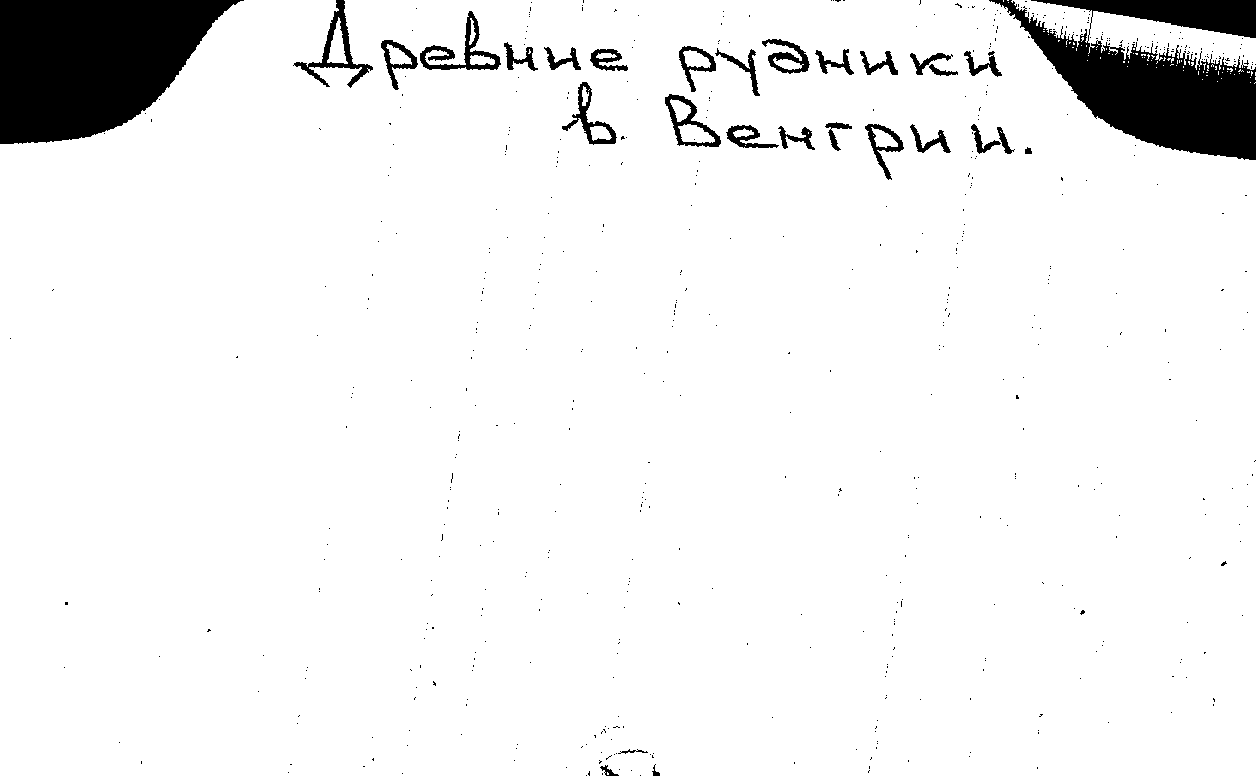 Древние рудники
в Венгрии.